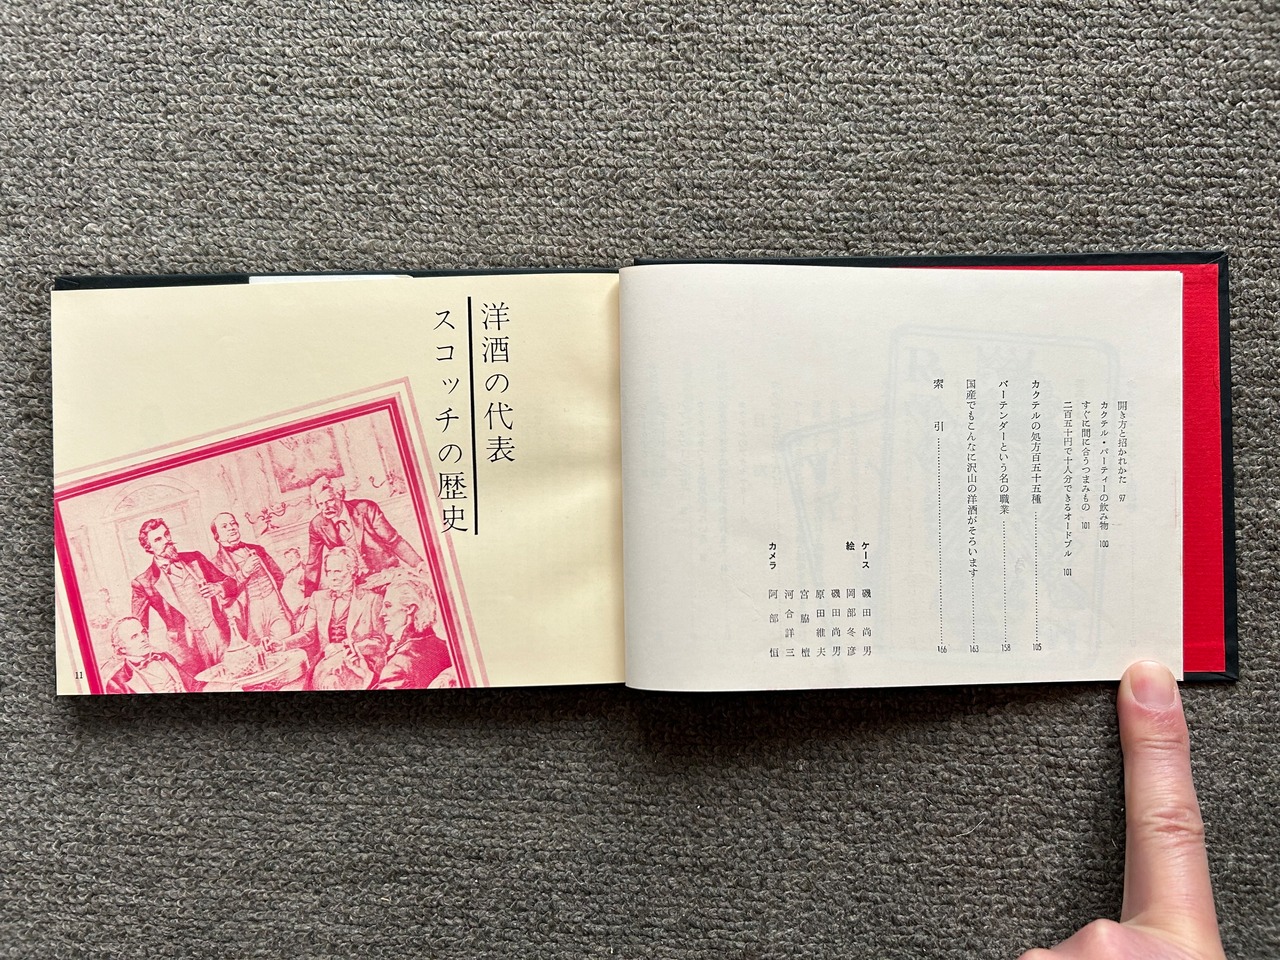 開き方と招かれかた 97
カクテル・パーティーの飲み物 100
すぐに間に合うつまみもの 101
二百五十円で十人分できるオードブル 101
カクテルの処方百五十五種 105
バーテンダーという名の職業 158
国産でもこんなに沢山の洋酒がそろいます 163
索引 166
ケース 磯田尚男
絵 岡部冬彦
磯田尚男
原田維夫
宮脇檀
河合詳三
カメラ 阿部恒
洋酒の代表
スコッチの歴史
11